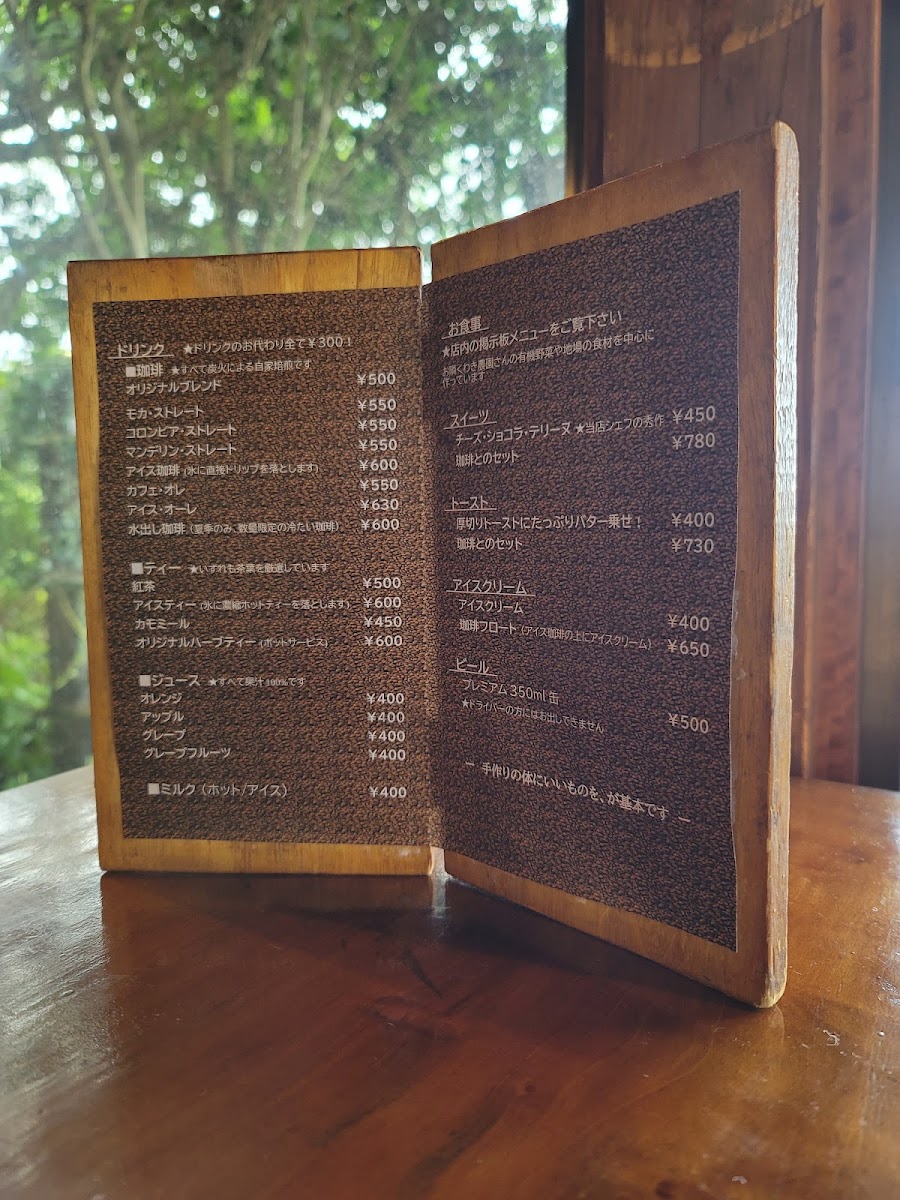 ドリンク ★ドリンクのお代わり全て¥300!
■珈琲 ★すべて炭火による自家焙煎です
オリジナルブレンド ¥500
モカ・ストレート ¥550
コロンビア・ストレート ¥550
マンデリン・ストレート ¥550
アイス珈琲 (氷に直接ドリップを落とします) ¥600
カフェ・オレ ¥550
アイス・オーレ ¥630
水出し珈琲 (夏季のみ、数量限定の冷たい珈琲) ¥600
■ティー ★いずれも茶葉を厳選しています
紅茶 ¥500
アイスティー (氷に濃縮ホットティーを落とします) ¥600
カモミール ¥450
オリジナルハーブティー (ポットサービス) ¥600
■ジュース ★すべて果汁100%です
オレンジ ¥400
アップル ¥400
グレープ ¥400
グレープフルーツ ¥400
■ミルク (ホット/アイス) ¥400
お食事
★店内の掲示板メニューをご覧下さい
くわき農園さんの有機野菜や地場の食材を中心に
作っています
スイーツ
チーズ・ショコラ・テリーヌ ★当店シェフの秀作 ¥450
珈琲とのセット ¥780
トースト
厚切りトーストにたっぷりバター乗せ! ¥400
珈琲とのセット ¥730
アイスクリーム
アイスクリーム ¥400
珈琲フロート (アイス珈琲の上にアイスクリーム) ¥650
ビール
プレミアム 350ml 缶 ¥500
★ドライバーの方にはお出しできません
― 手作りの体にいいものを、が基本です ―